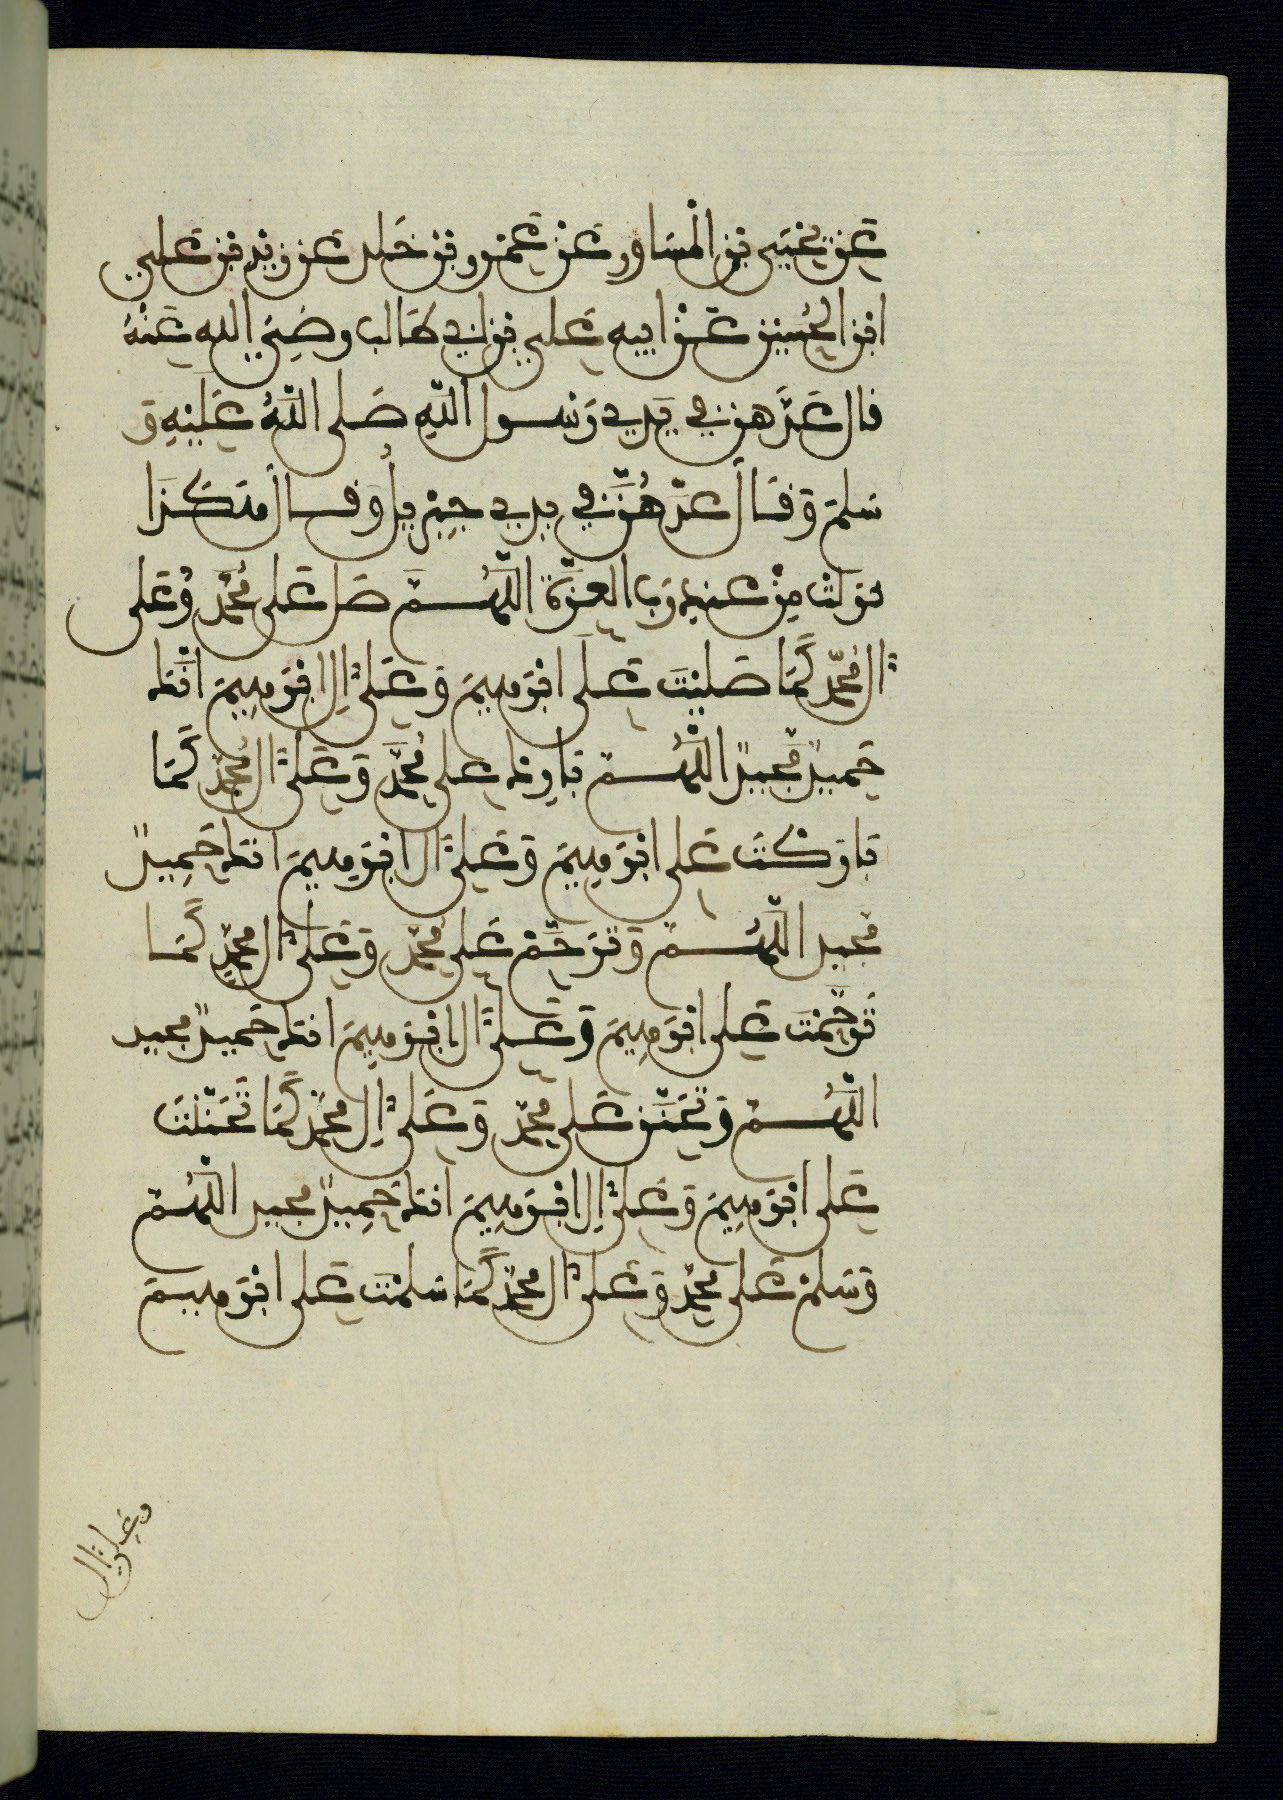 عن يحيى بن المساور عن عمرو بن خلد عن زيد بن علي
ابن الحسين عن ابيه علي بن ابي طالب رضي الله عنه
قال عدهن في يدي رسول الله صلى الله عليه و
سلم وقال عدهن في يدي جبريل وقال هكذا
نزلت من عند رب العزة اللهم صل على محمد وعلى
ال محمد كما صليت على ابرهيم وعلى ال ابرهيم انك
حميد مجيد اللهم بارك على محمد وعلى ال محمد كما
باركت على ابرهيم وعلى ال ابرهيم انك حميد
مجيد اللهم وترحم على محمد وعلى ال محمد كما
ترحمت على ابرهيم وعلى ال ابرهيم انك حميد مجيد
اللهم وتحنن على محمد وعلى ال محمد كما تحننت
على ابرهيم وعلى ال ابرهيم انك حميد مجيد اللهم
وسلم على محمد وعلى ال محمد كما سلمت على ابرهيم
وعلى ال